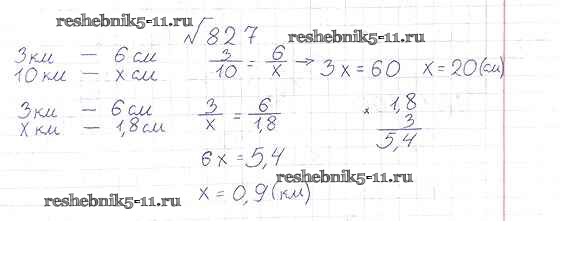 reshebnik5-11.ru
№827
reshebnik5-11.ru
3км – 6см
10км – хсм
3/10 = 6/x → 3x = 60 x = 20(см)
3км – 6см
хкм – 1,8см
3/x = 6/1,8
× 1,8
3
5,4
6x = 5,4
reshebnik5-11.ru
x = 0,9(км)
reshebnik5-11.ru